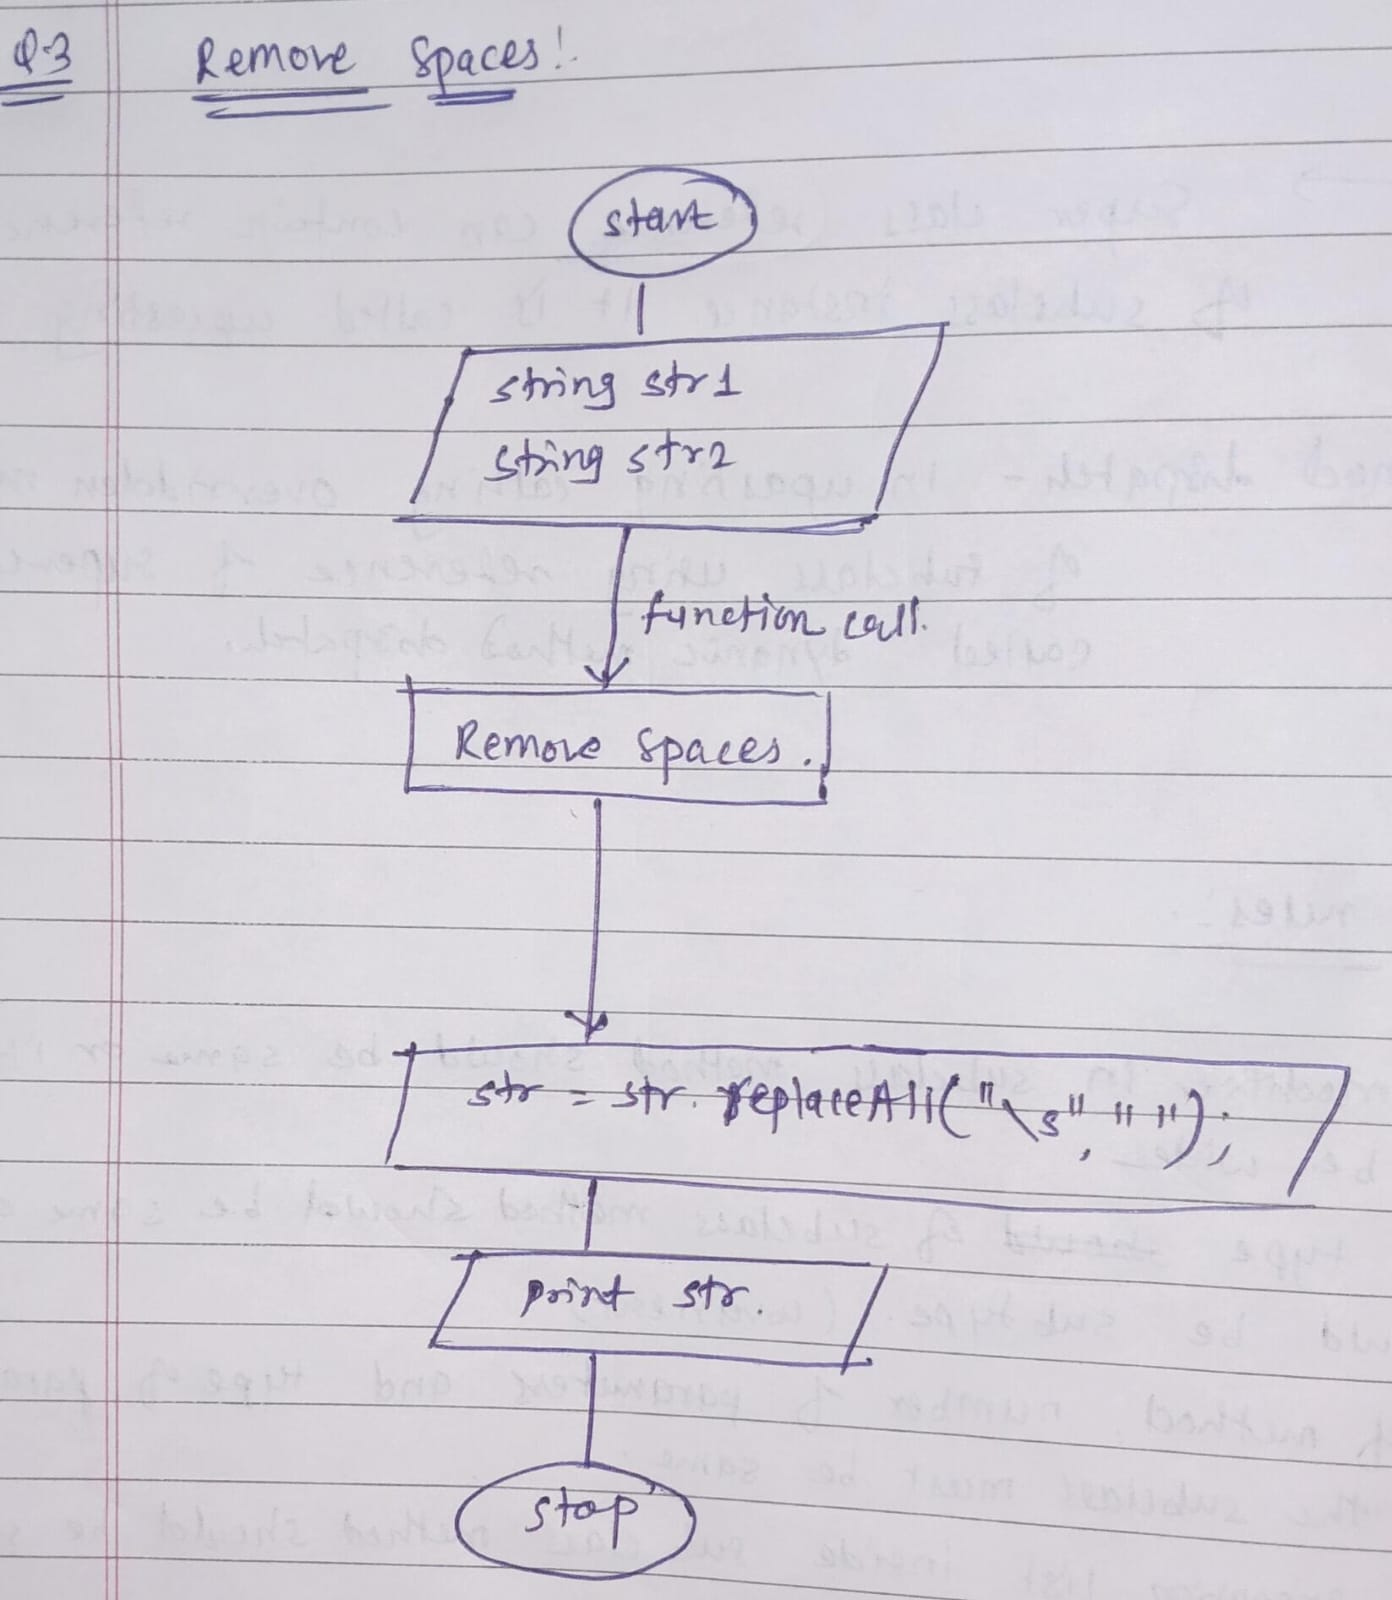 Q.3 Remove Spaces!
start
string str1
string str2
function call.
Remove Spaces.
str = str. replaceAll("\s", " ");
print str.
stop